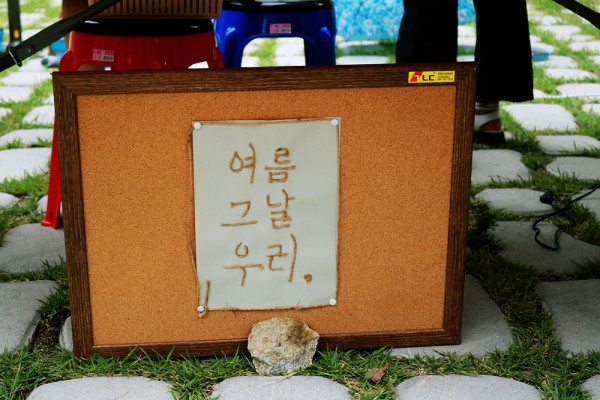 여름
그날
우리.
LC